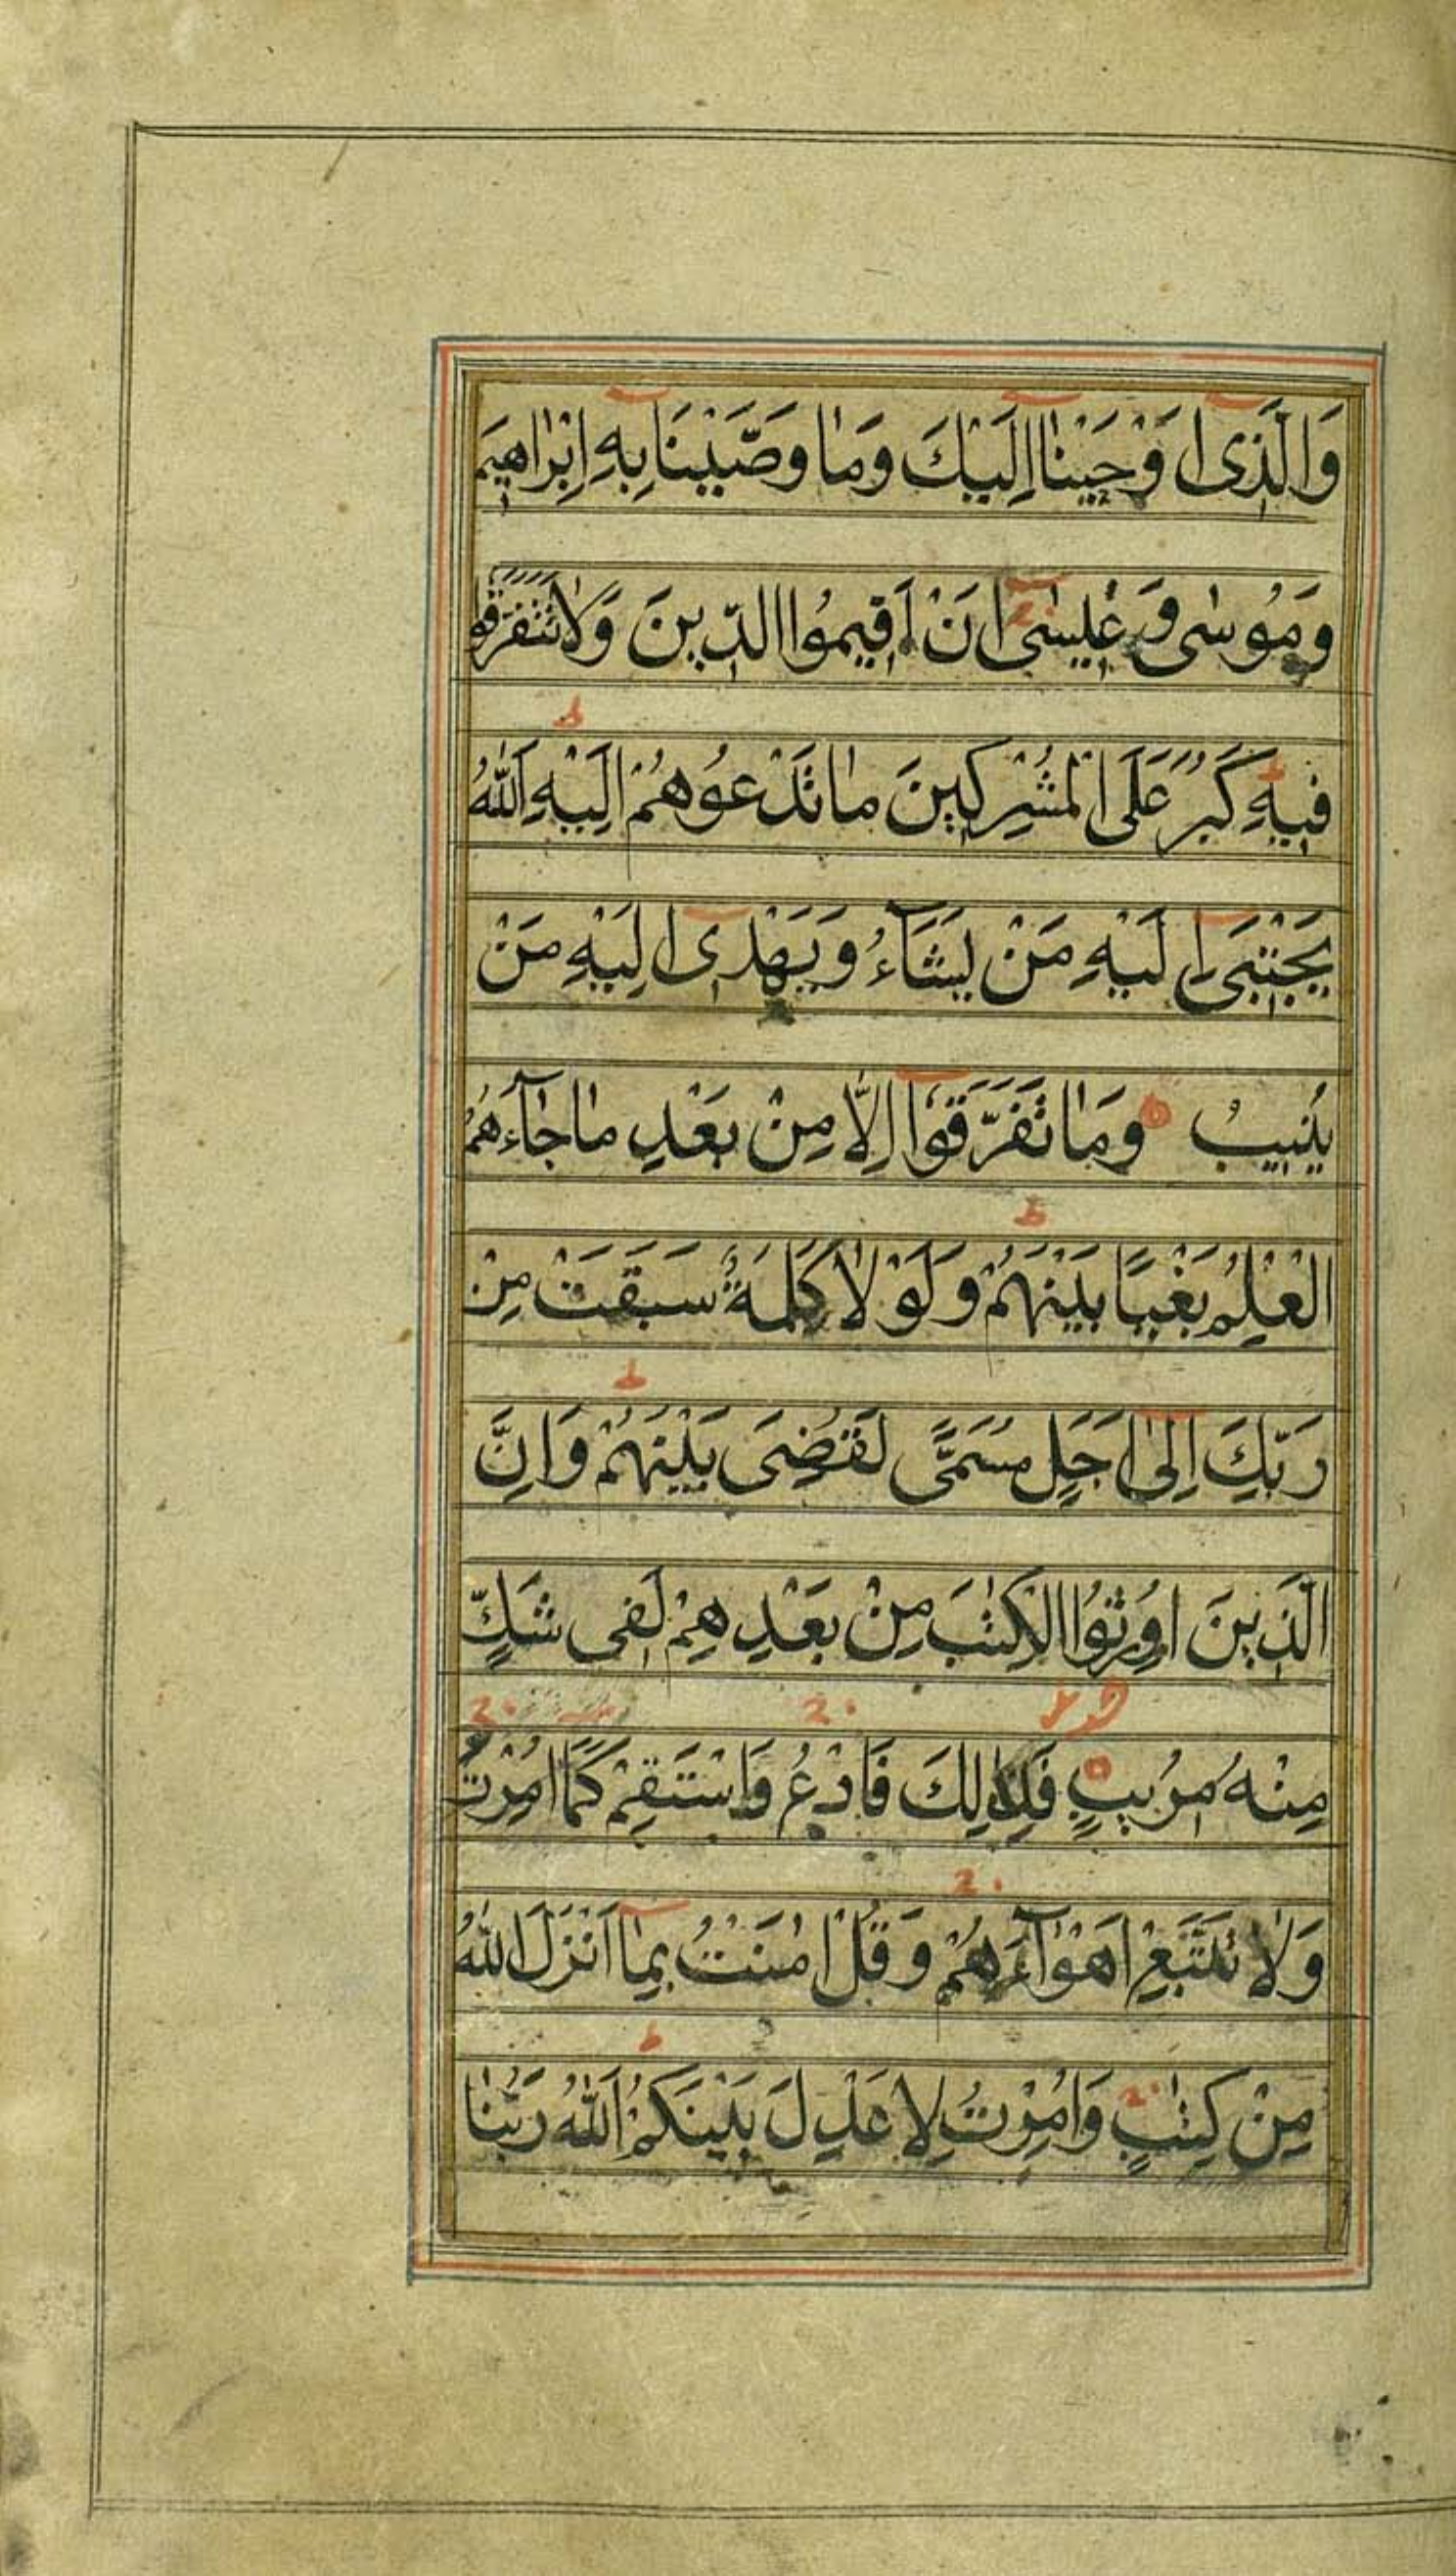 وَالَّذِى اَوْحَيْنٰا اِلَيْكَ وَمٰا وَصَّيْنَا بِهِ اِبْرٰاهِيمَ
وَمُوسٰى وَعِيسٰى اَنْ اَقِيمُوا الدِّينَ وَلٰا تَتَفَرَّقُوا
فِيهِ كَبُرَ عَلَى الْمُشْرِكِينَ مٰا تَدْعُوهُمْ اِلَيْهِ اَللّٰهُ
يَجْتَبِى اِلَيْهِ مَنْ يَشَآءُ وَيَهْدِى اِلَيْهِ مَنْ
يُنِيبُ وَمٰا تَفَرَّقُوْا اِلّٰا مِنْ بَعْدِ مٰا جٰآءَهُمُ
الْعِلْمُ بَغْيًا بَيْنَهُمْ وَلَوْ لٰا كَلِمَةٌ سَبَقَتْ مِنْ
رَبِّكَ اِلٰى اَجَلٍ مُسَمًّى لَقُضِىَ بَيْنَهُمْ وَاِنَّ
الَّذِينَ اُورِثُوا الْكِتٰبَ مِنْ بَعْدِهِمْ لَفِى شَكٍّ
مِنْهُ مُرِيبٍ فَلِذٰلِكَ فَادْعُ وَاسْتَقِمْ كَمَا اُمِرْتَ
وَلٰا تَتَّبِعْ اَهْوٰآءَهُمْ وَقُلْ اٰمَنْتُ بِمٰا اَنْزَلَ اللّٰهُ
مِنْ كِتٰبٍ وَاُمِرْتُ لِاَعْدِلَ بَيْنَكُمُ اَللّٰهُ رَبُّنٰا